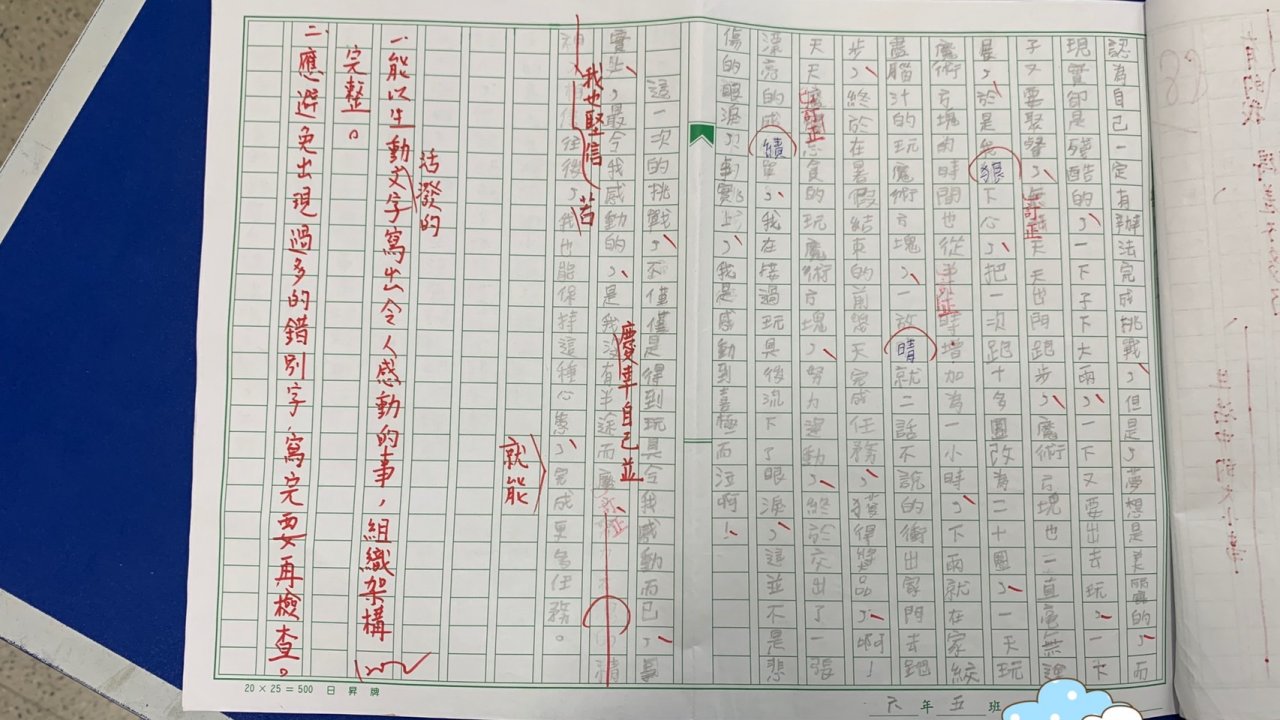 認為自己一定有辦法完成挑戰,但是,夢想是美麗的,而
現實卻是殘酷的,一下子下大雨,一下又要出去玩,一下
子又要聚餐,無天天出門跑步,魔術方塊也一直毫無進
展,於是我狠下心,把一次跑十多圈改為二十圈,一天玩
魔術方塊的時間也從半小時增加為一小時,下雨就在家絞
盡腦汁的玩魔術方塊,一放晴就二話不說的衝出家門去跑
步,終於在暑假結束的前幾天完成任務,獲得獎品,啊!
天天的玩魔術方塊,努力運動,終於交出了一張
漂亮的成績單,我在接過玩具後流下了眼淚,這並不是悲
傷的眼淚,事實上,我是感動到喜極而泣啊!
這一次的挑戰,不僅僅是得到玩具令我感動而已,事
實上,最令我感動的,是我沒有半途而廢精
慶幸自己並
神
我也堅信
往後,我也能保持這種心態,完成更多任務。
就能
活潑的
一、能以生動文字寫出令人感動的事,組織架構
完整。
二、應避免出現過多的錯別字,寫完要再檢查。
20×25=500 日昇牌
六年五班